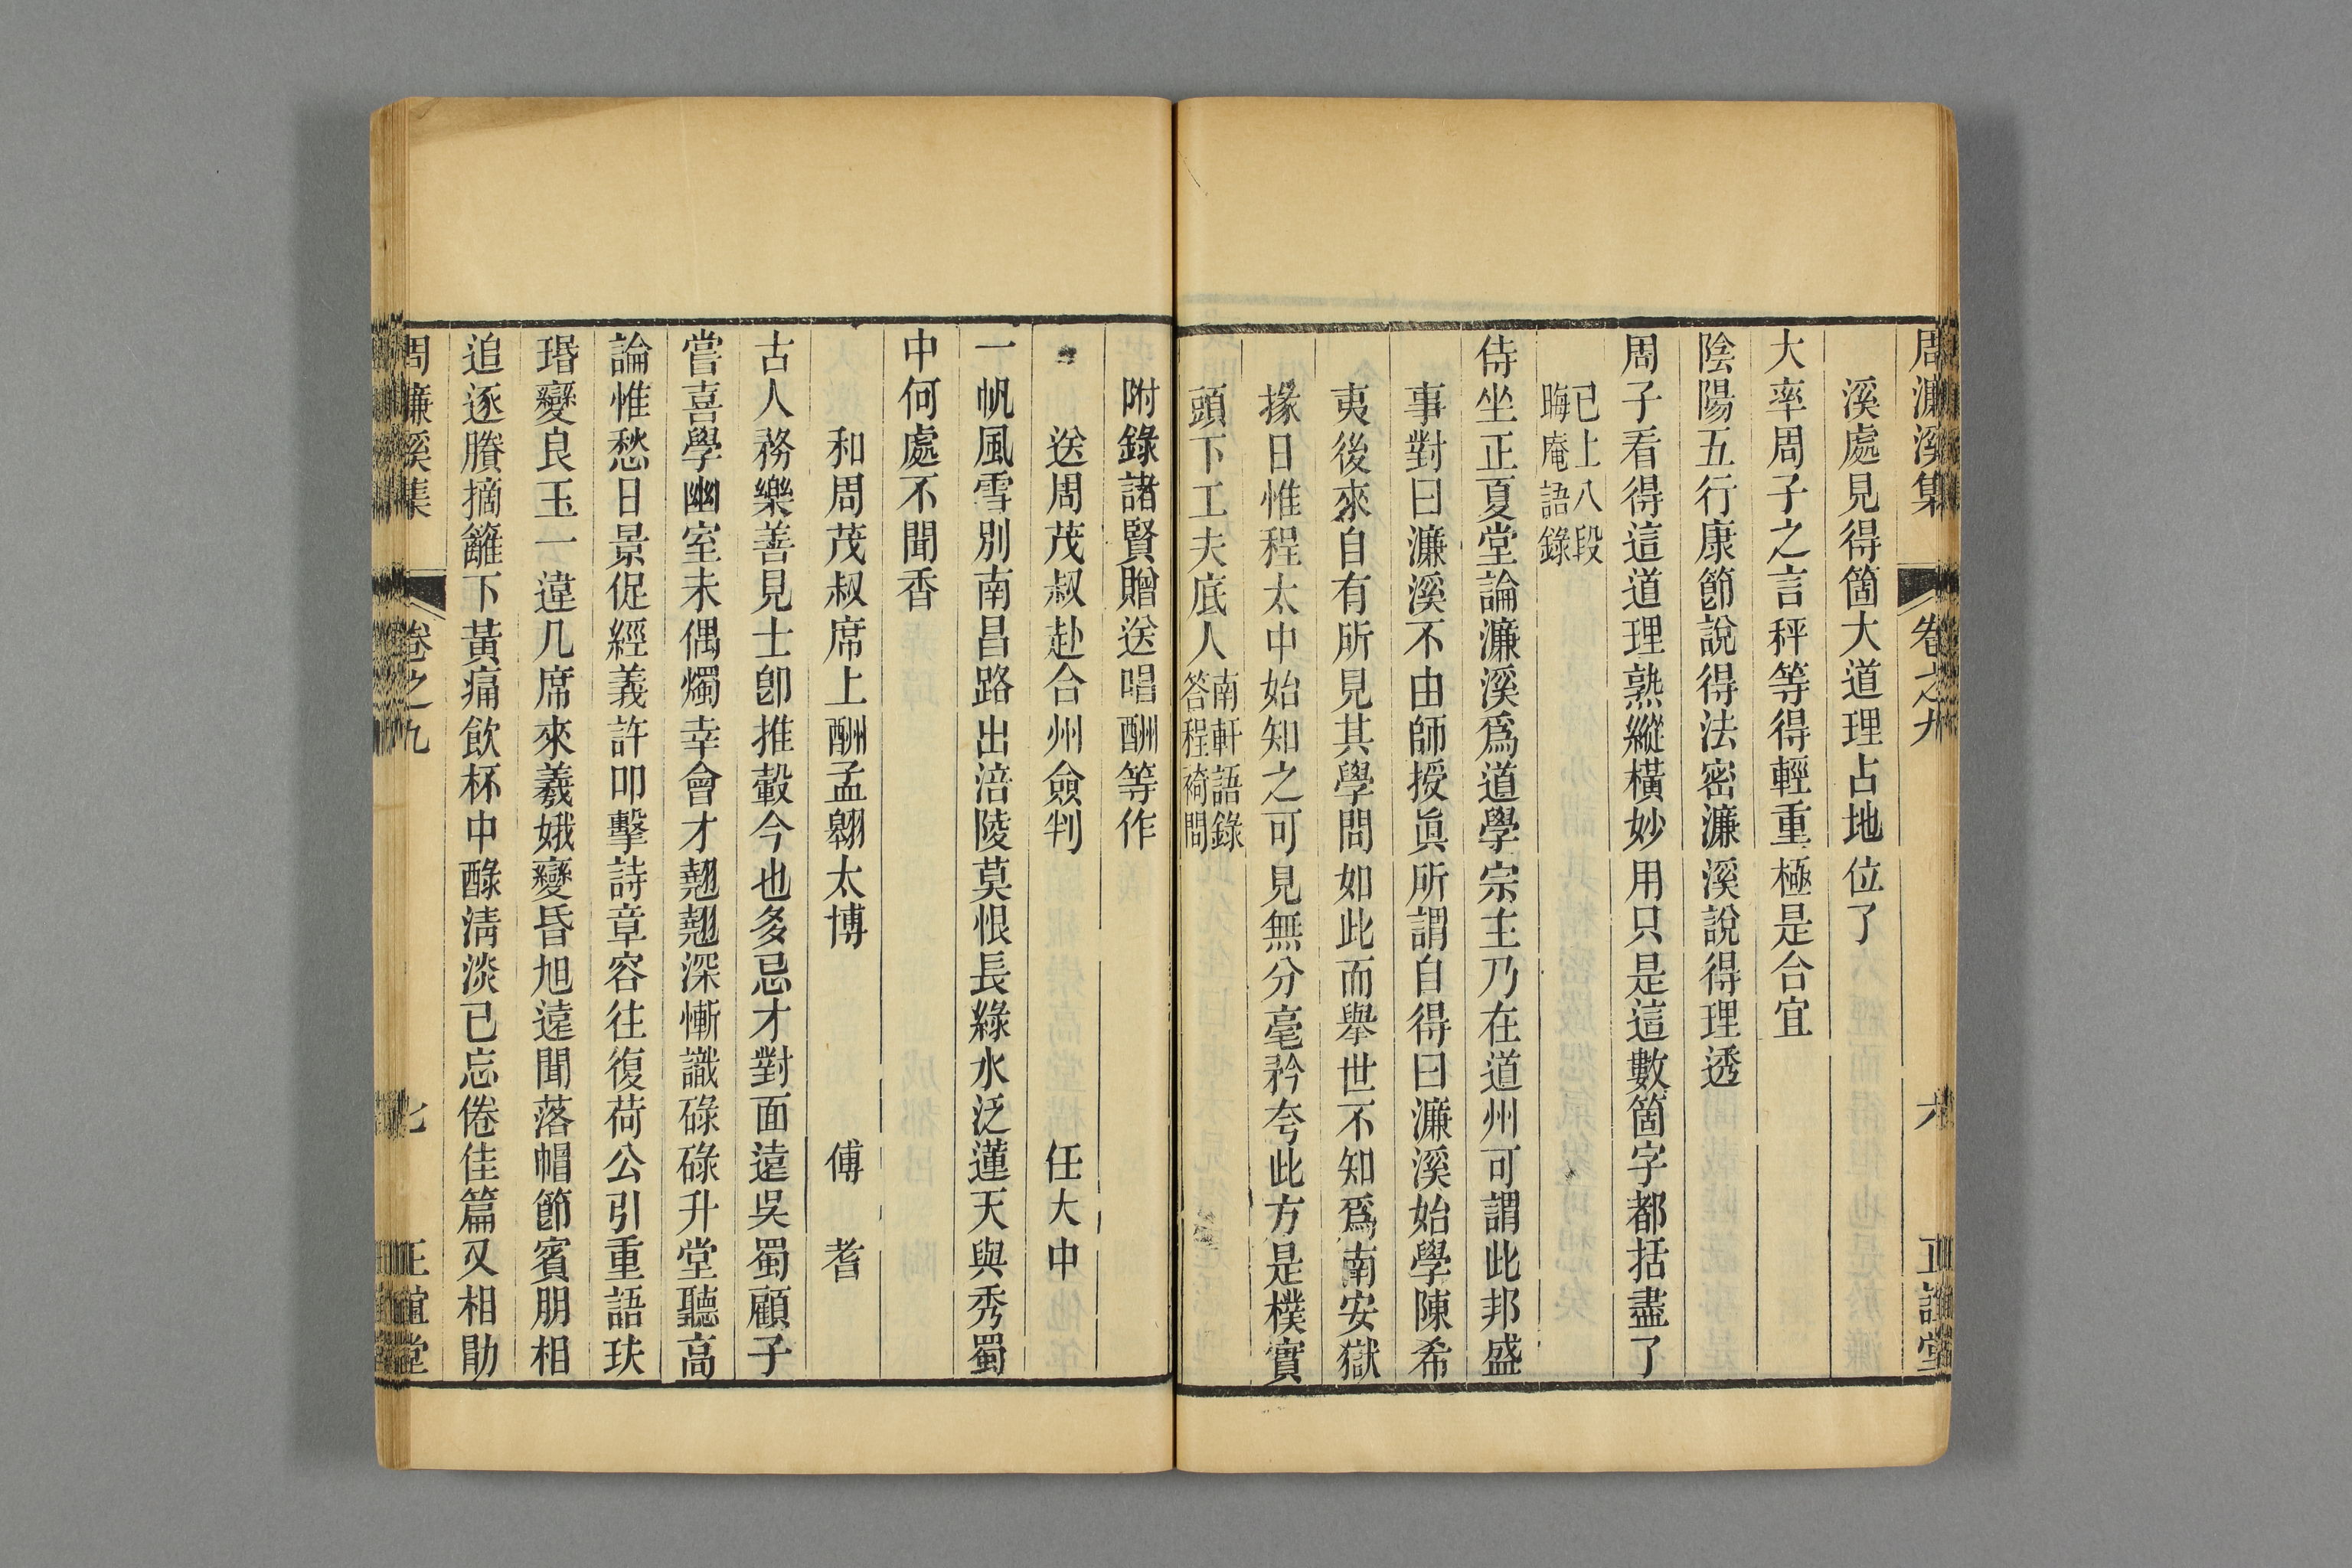 周濂溪集 卷之九 六 正誼堂
溪處見得箇大道理占地位了
大率周子之言秤等得輕重極是合宜
陰陽五行康節說得法密濂溪說得理透
周子看得這道理熟縱橫妙用只是這數箇字都括盡了
已上八段
晦庵語錄
侍坐正夏堂論濂溪爲道學宗主乃在道州可謂此邦盛
事對曰濂溪不由師授眞所謂自得曰濂溪始學陳希
夷後來自有所見其學問如此而舉世不知爲南安獄
掾日惟程太中始知之可見無分毫矜夸此方是樸實
頭下工夫底人南軒語錄
答程䄎問
附錄諸賢贈送唱酬等作
送周茂叔赴合州僉判 任大中
一帆風雪別南昌路出涪陵莫恨長綠水泛蓮天與秀蜀
中何處不聞香
和周茂叔席上酬孟翱太博 傅耆
古人務樂善見士卽推轂今也多忌才對面遠吳蜀顧子
嘗喜學幽室未偶燭幸會才翹翹深慚識碌碌升堂聽高
論惟愁日景促經義許叩擊詩章容往復荷公引重語玞
瑉變良玉一違几席來羲娥變昏旭遠聞落帽節賓朋相
追逐賸摘籬下黃痛飲杯中醁淸淡已忘倦佳篇又相勖
周濂溪集 卷之九 七 正誼堂